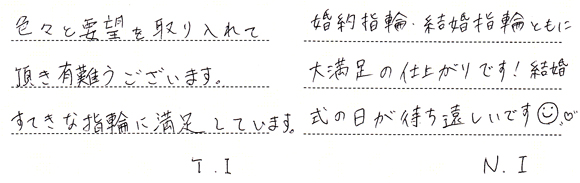 色々と要望を取り入れて
頂き有難うございます。
すてきな指輪に満足しています。
T.I
婚約指輪・結婚指輪ともに
大満足の仕上がりです！結婚
式の日が待ち遠しいです☺♡
N.I